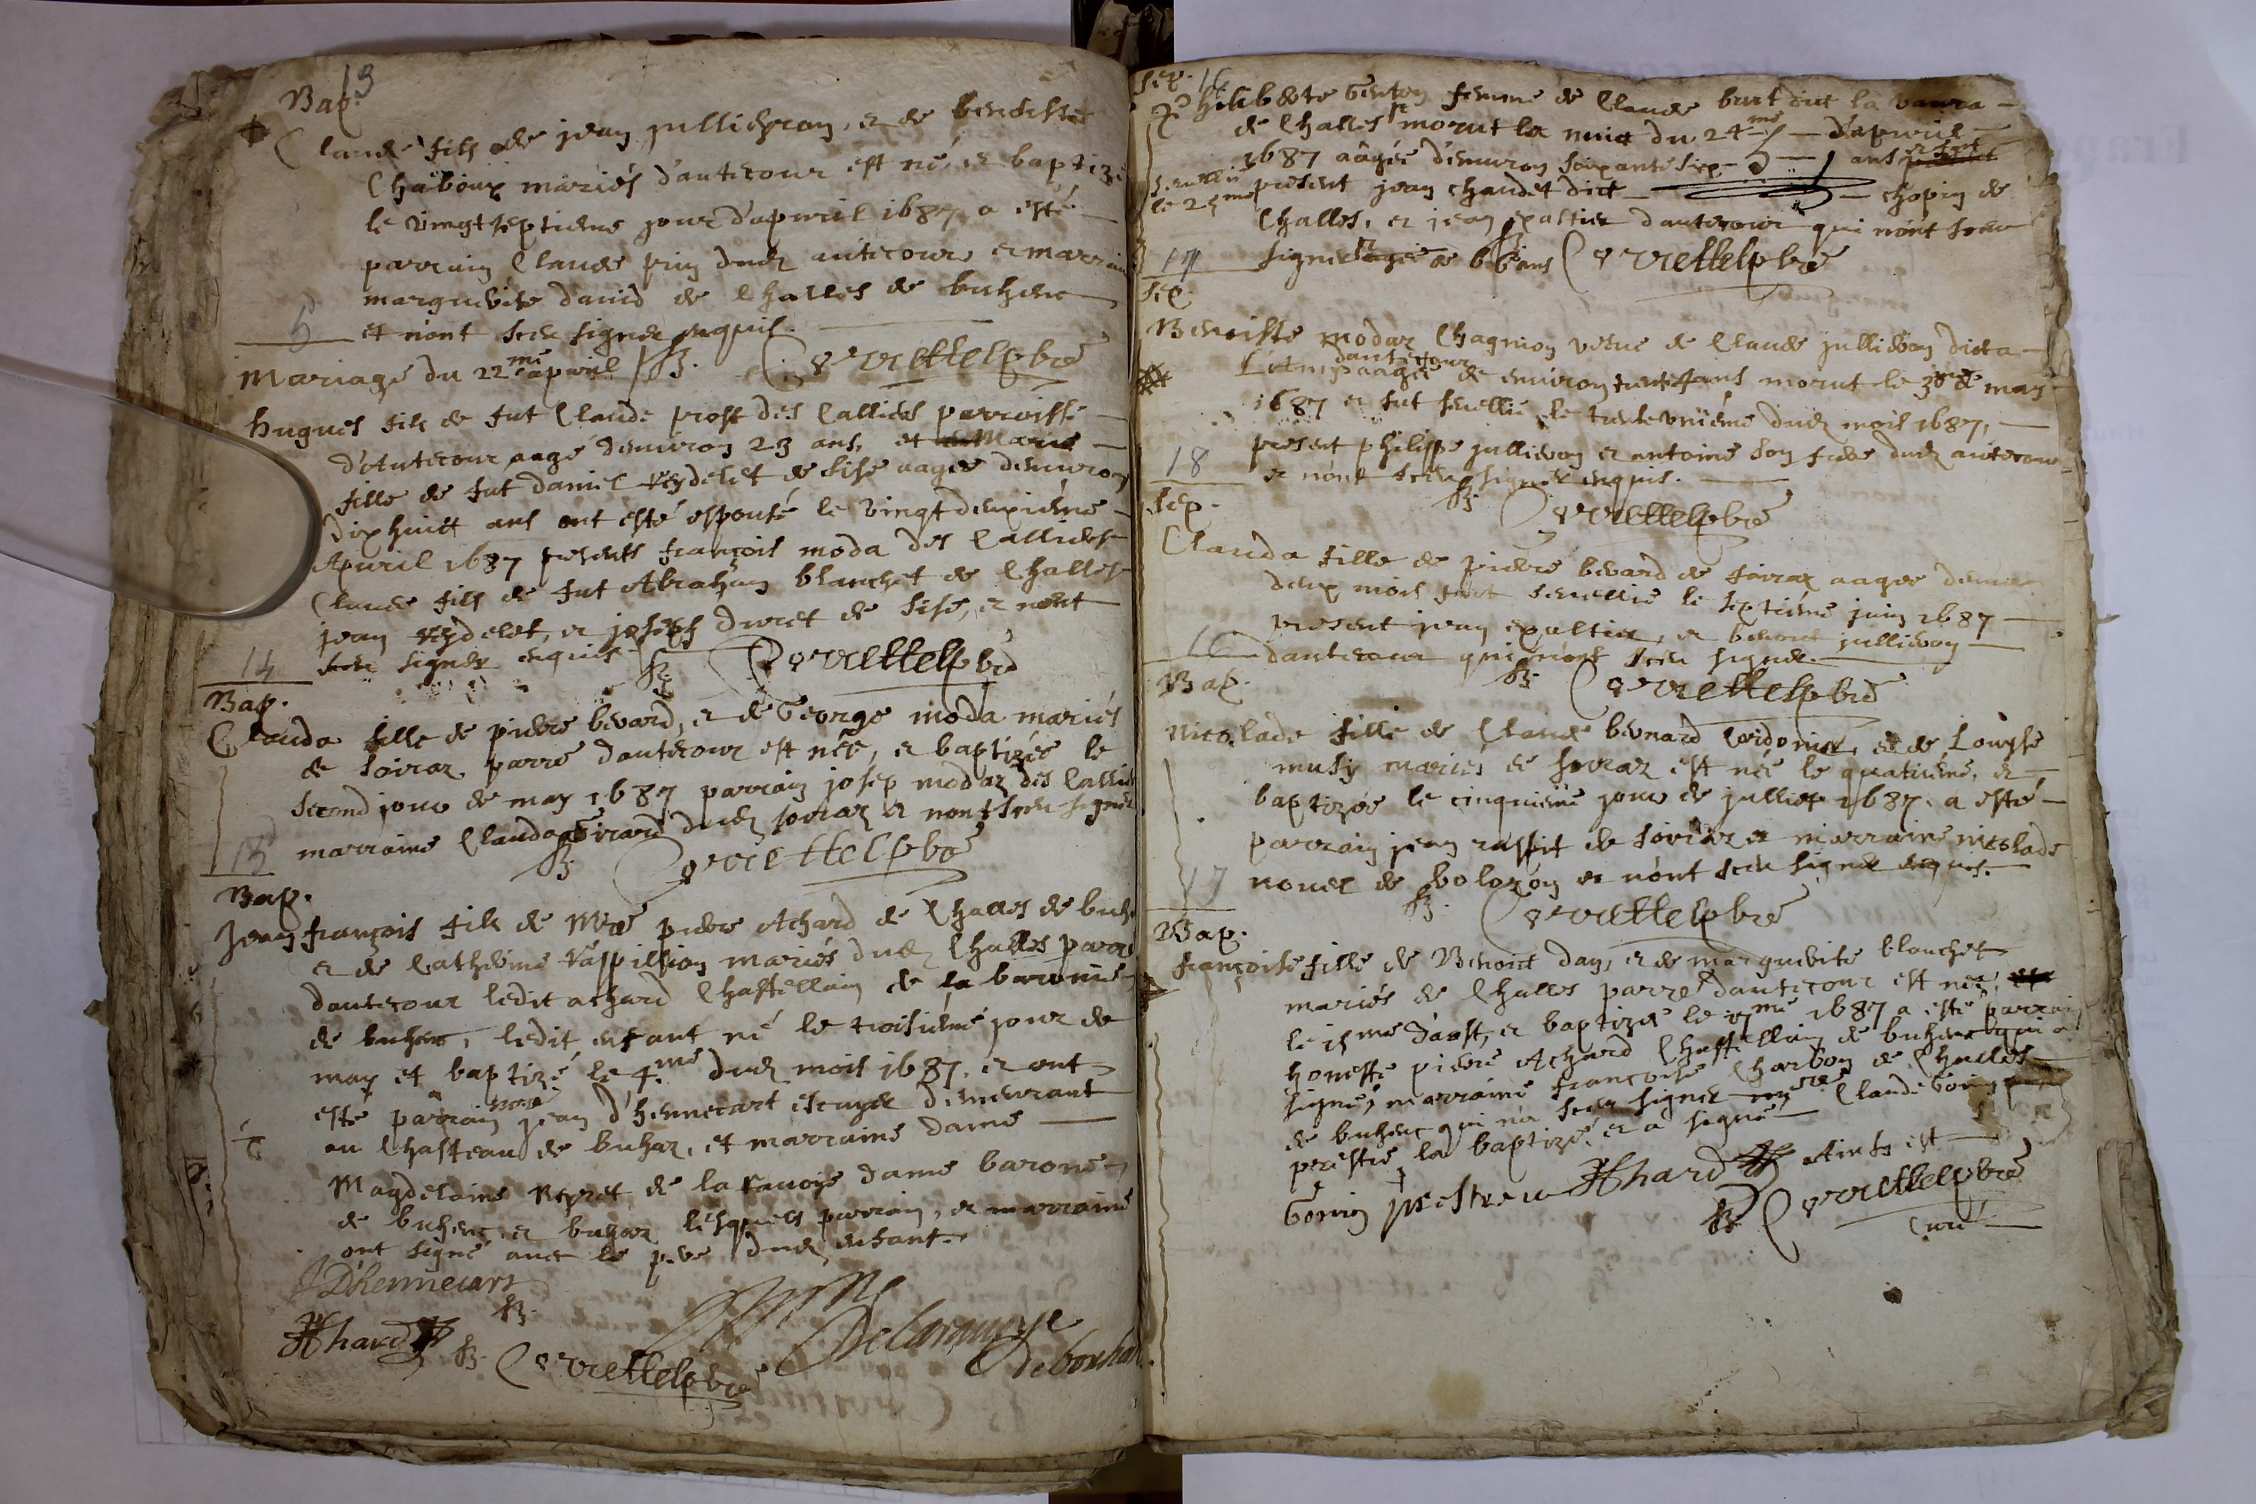 13
Bap.
Claude fils de jean jullieron, et de benoiste
Chaboux mariés d'autecour est né, et baptizé
le vingt septieme jour d'apvril 1687 a esté
parrain Claude prin dud autecour et marraine
marguerite david de Challes de buhenc
et n'ont sceu signer enquis.
5
Mariage du 22me apvril
hugues fils de fut Claude prost des Callies parroisse
d'Autecour aagé d'environ 23 ans, et Marie
fille de fut Daniel reydelet de Sise aagée d'environ
dixhuict ans ont esté espousé le vingt deuxieme
Apvril 1687 presents françois moda des Callies
Claude fils de fut Abraham blanchet de Challes
jean reydelet, et joseph duret de Sise, et n'ont
sceu signer enquis
14
Bap.
Clauda fille de pierre bevard, et de George moda mariés
de soiraz parre d'autecour est née, et baptizée le
second jour de may 1687 parrain josep modaz des Callies
marraine Clauda Girard dud soiraz et n'ont sceu signer
15
Bap.
Jean françois fils de Mre pierre Achard de Challes de buhenc
et de Catherine Vaspillion mariés dud Challes parre
d'autecour ledit achard Chastellain de la baronie
de buhenc, ledit enfant né le troisieme jour de
may et baptizé le 4.me dud mois 1687. et ont
esté parrain noble jean d'hennecart escuyer demeurant
au Chasteau de buhaz, et marraine dame
Magdelaine de la dame barone
de buhenc et buhaz lesquels parrain, et marraine
ont signé avec le pere dud enfant.
J Dhennecart
Achard
16
Sep.
Philiberte Genton femme de Claude burt dit la
de Challes morut la nuict du 24me d'apvril
1687 aagée d'environ soixante six ans
sevellie present jean chaudet dict chopin de
le 25me
Challes, et jean expaltier d'autecour qui n'ont sceu
signer aagée de 66 ans
17
Sep.
Benoiste modaz Chagnion veuve de Claude jullieron dicta
d'autecour
aagée de environ ans morut le 30me de may
1687 et fut sevellie le trente unieme dud mois 1687,
present philippe jullieron et antoine son frere dud autecour
et n'ont sceu signer enquis.
18
Sep.
Clauda fille de pierre bevard de soiraz aagée d'environ
deux mois fut sevellie le septieme juin 1687
present jean expaltier, et benoit jullieron
d'autecour qui n'ont sceu signer.
16
Bap.
Nicolade fille de Claude bernard et de Louyse
musy mariés de soiraz est née le quatrieme, et
baptizée le cinquieme jour de julliet 1687. a esté
parrain jean rassit de soiraz et marraine nicolade
nouel de bolozon et n'ont sceu signer enquis.
17
Bap.
françoise fille de Benoict Day, et de marguerite blanchet
mariés de Challes parre d'autecour est née,
le 15me d'aost, et baptizée le me 1687 a esté parrain
honeste pierre Achard Chastellain de buhenc qui a
signé, marraine françoise Charbon de Challes
de buhenc qui n'a sceu signer Claude Gonin
prestre la baptizé, et a signé
Gonin prestre Achard Ainsi est
curé